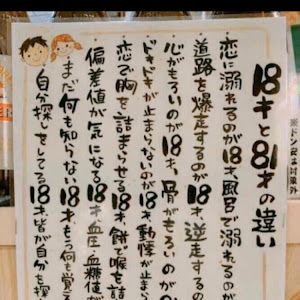 18才と81才の違い
恋に溺れるのが18才、風呂で溺れるのが
道路を爆走するのが18才、逆走するの
心がもろいのが18才、骨がもろいのが
ドキドキが止まらないのが18才、動悸が止まら
恋で胸を詰まらせる18才、餅で喉を詰
偏差値が気になる18才、血圧・血糖値が
まだ何も知らない18才、もう何も覚え
自分探しをしてる18才、皆が自分を探